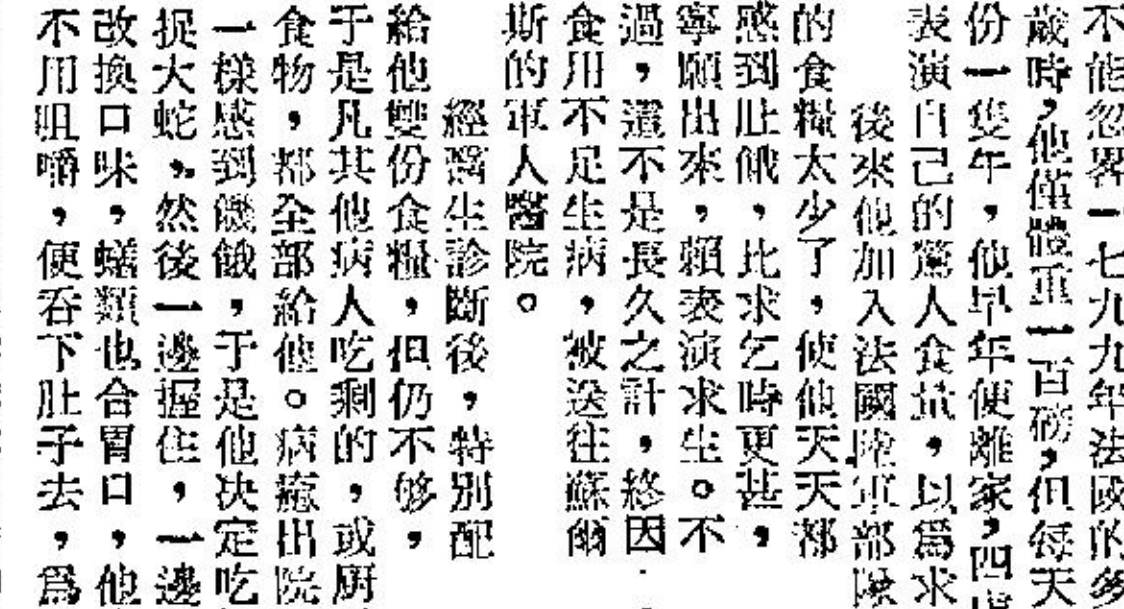 不能忽畧一七九九年法國的多
歲時,他僅體重一百磅,但每天
份一隻年,他早年便離家,四處
表演自己的驚人食量,以爲求
後來他加入法國陸軍部隊
的食糧太少了,使他天天都
感到肚餓,比求乞時更甚,
寧願出來,賴表演求生。不
過,這不是長久之計,終因
食用不足生病,被送往蘇爾
斯的軍人醫院。
經醫生診斷後,特別配
給他雙份食糧,但仍不够,
于是凡其他病人吃剩的,或厨
食物,都全部給他。病癒出院
一樣感到饑餓,于是他决定吃
捉大蛇,然後一邊握住,一邊
改換口味,蟮類也合胃口,他
不用咀嚼,便吞下肚子去,爲